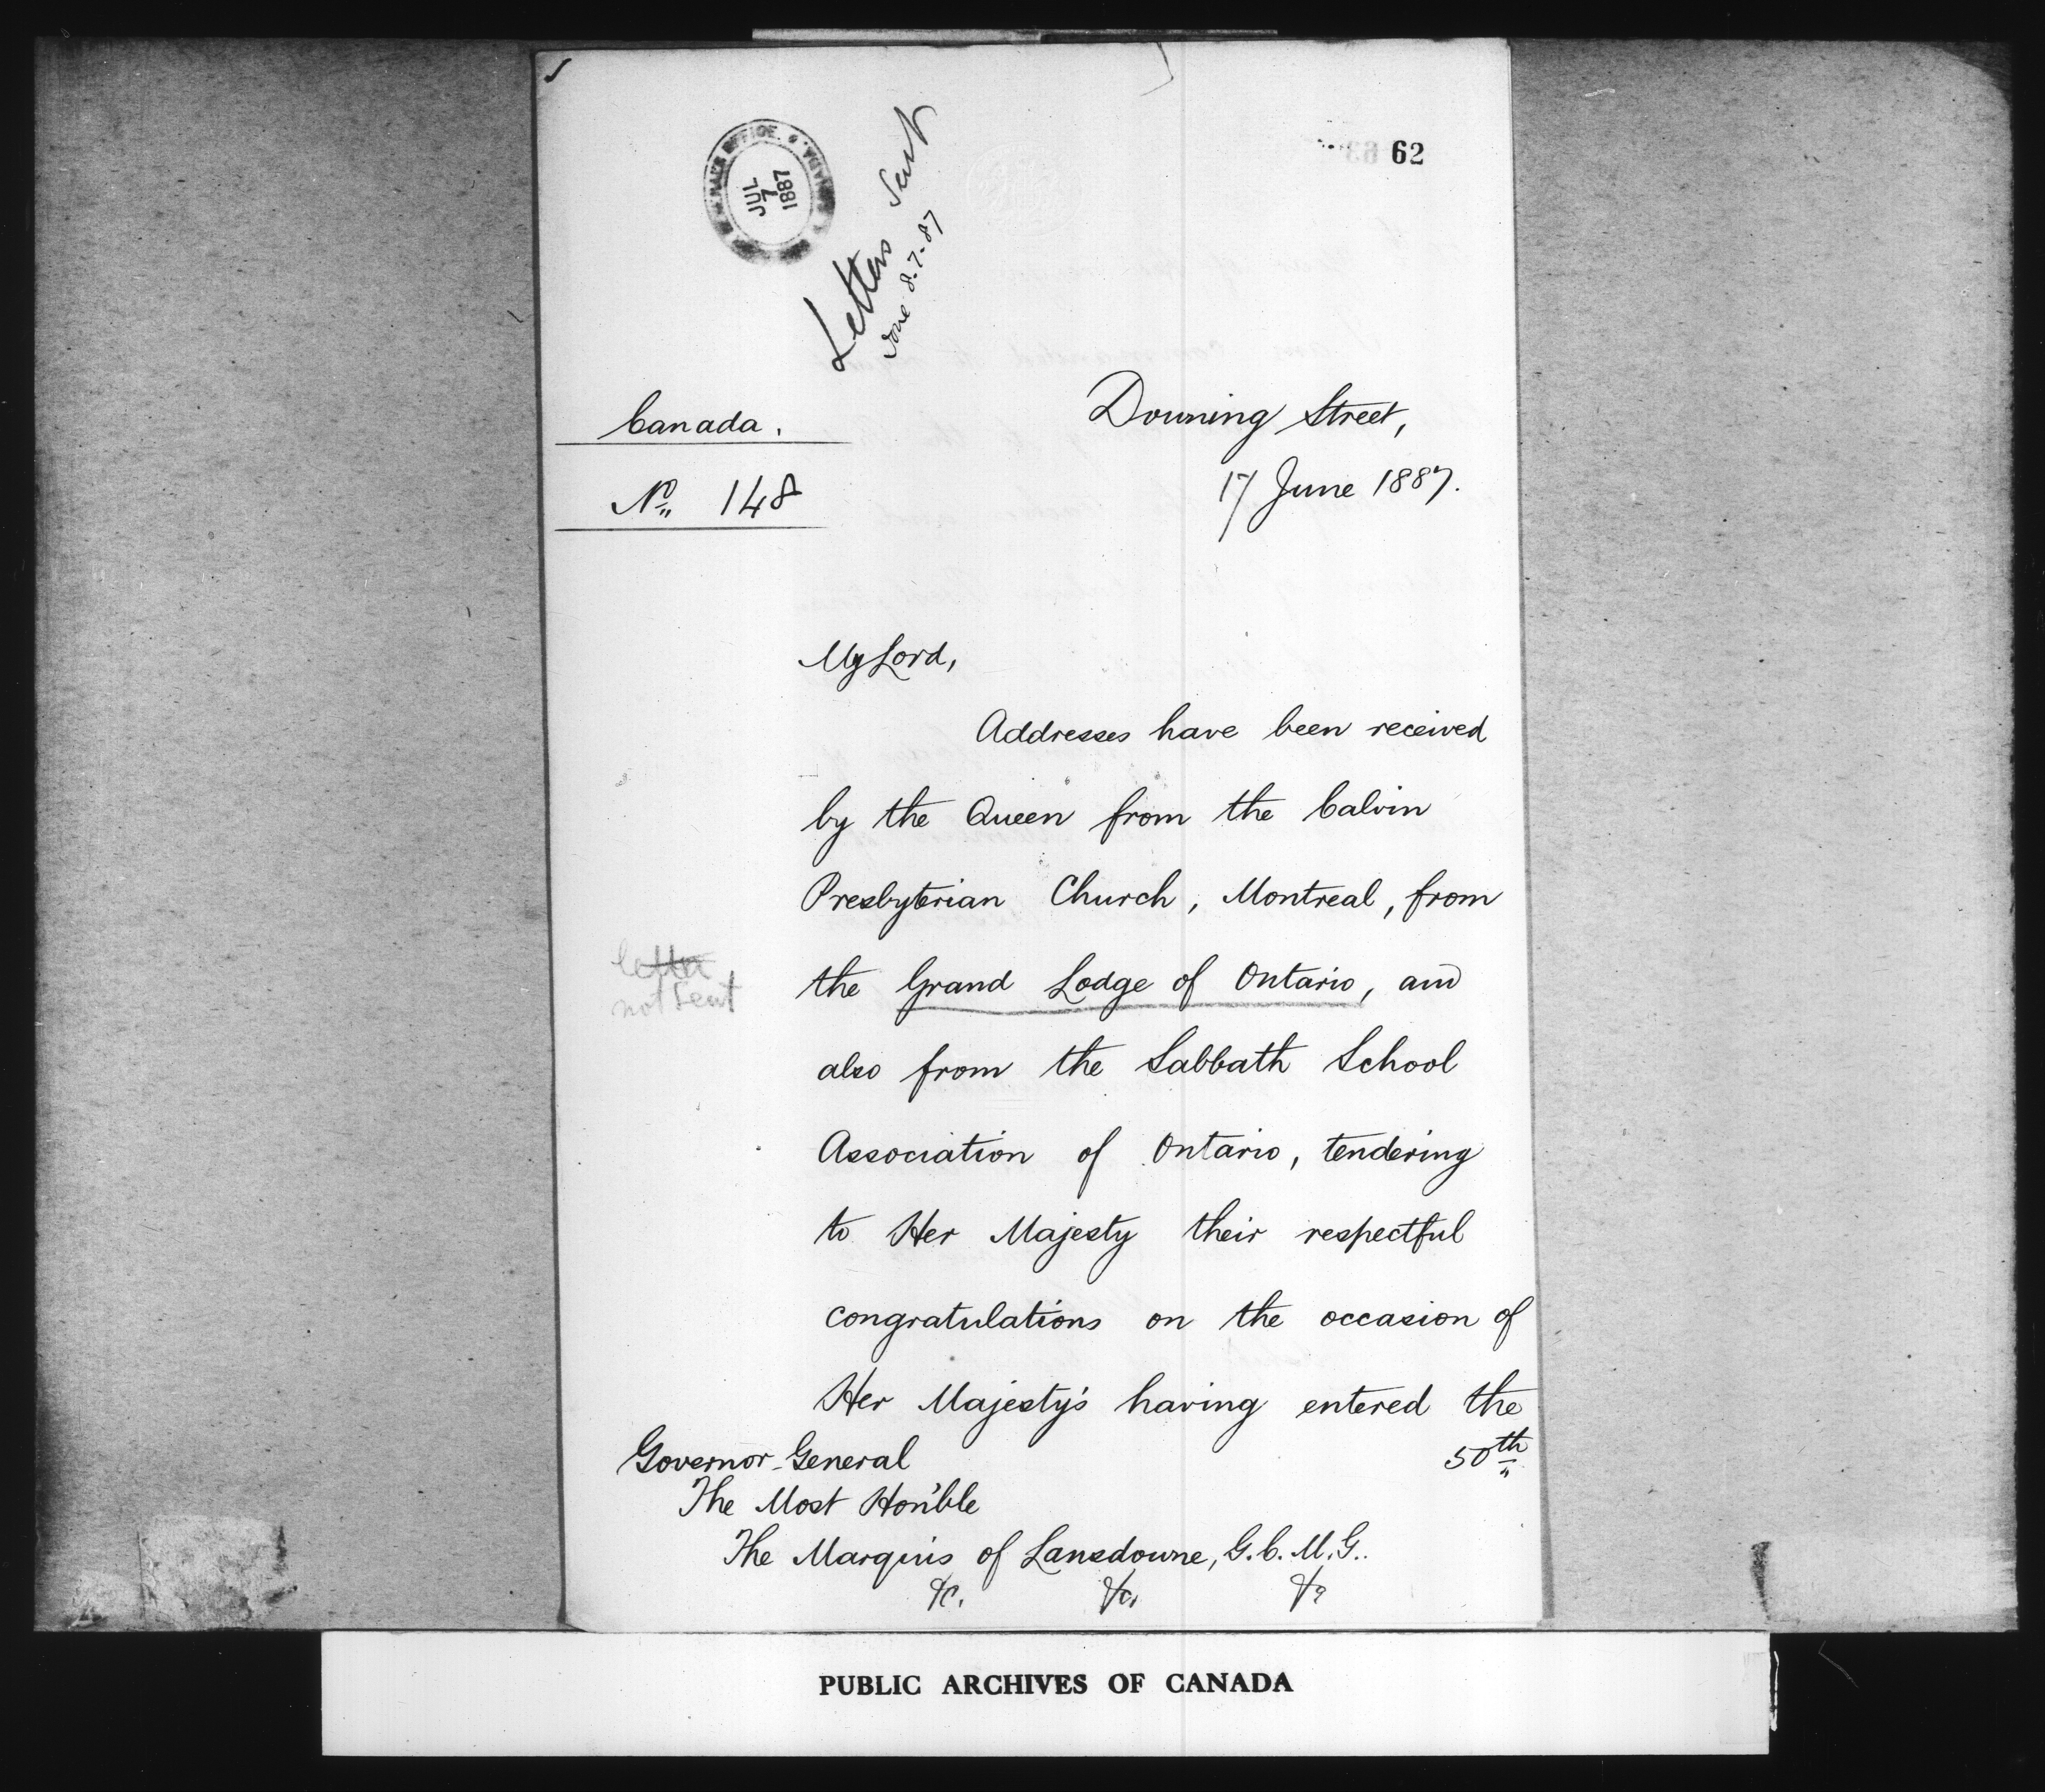 JUL
7
1887
Letters Sent
done 8.7.87
62
Canada.
Downing Street,
No. 148
17 June 1887.
My Lord,
Addresses have been received
by the Queen from the Calvin
Presbyterian Church, Montreal, from
the Grand Lodge of Ontario, and
letter
not sent
also from the Sabbath School
Association of Ontario, tendering
to Her Majesty their respectful
congratulations on the occasion of
Her Majesty's having entered the
50th
Governor-General
The Most Hon'ble
The Marquis of Lansdowne, G.C.M.G..
&c. &c. &c
PUBLIC ARCHIVES OF CANADA